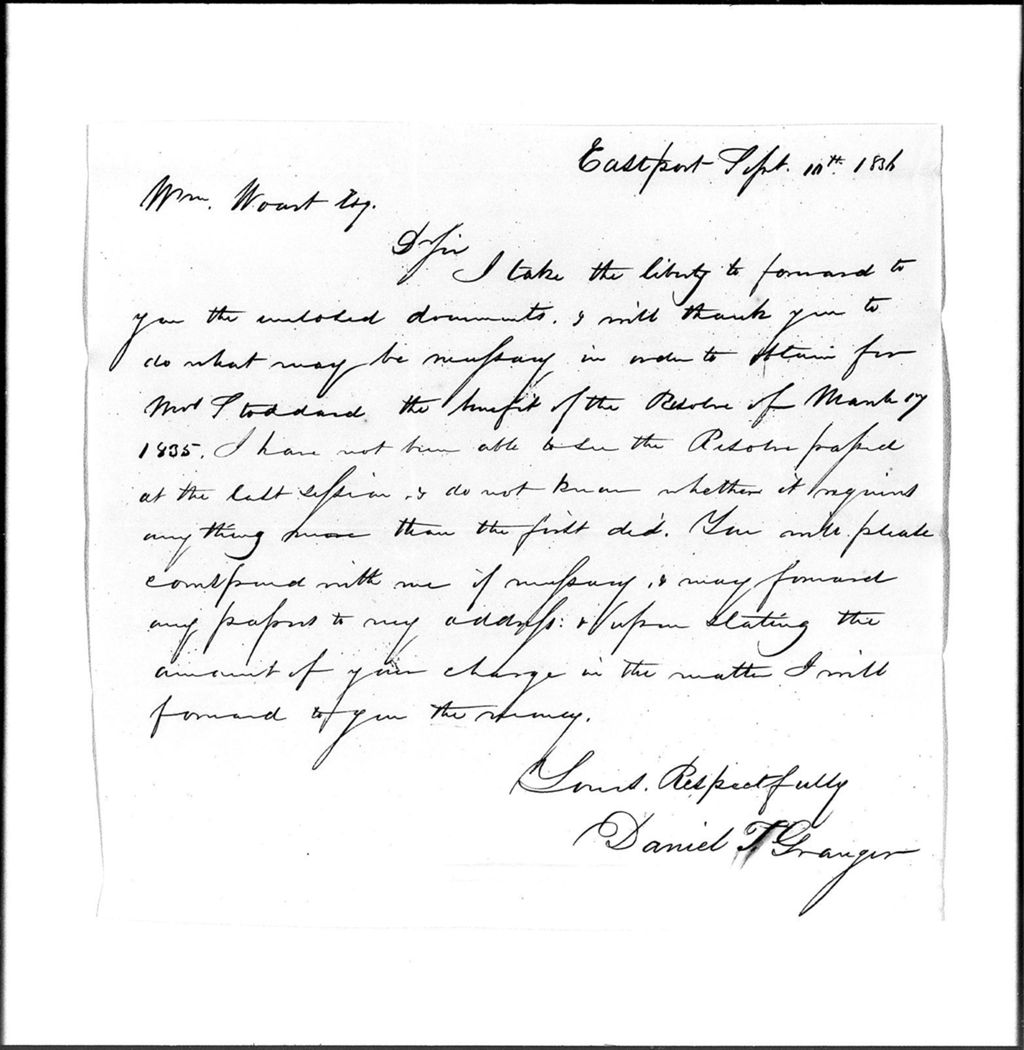 Eastport Sept. 10th 1836
Wm. Woart Esq.
Dr Sir
I take the liberty to forward to
you the enclosed documents. & will thank you to
do what may be necessary in order to obtain for
Mrs Stoddard the benefit of the Resolve of March 17
1835. I have not been able to see the Resolve passed
at the last session, & do not know whether it requires
any thing more than the first did. You will please
correspond with me if necessary, & may forward
any papers to my address: & upon stating the
amount of your charge in the matter I will
forward to you the money.
Yours. Respectfully
Daniel T Granger